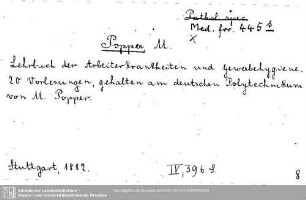 Pathol. spec.
Med. for. 445 s
x
Popper M.
Lehrbuch der Arbeiterkrankheiten und Gewerbehygiene.
20 Vorlesungen, gehalten am deutschen Polytechnikum
von M. Popper.
Stuttgart, 1882.
IV, 396 S.
8